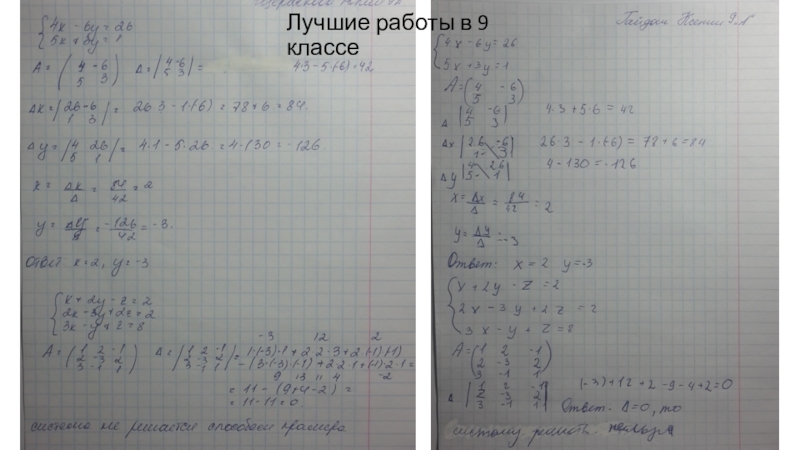 Лучшие работы в 9
классе
{4x - 6y = 26
5x + 3y = 1
A = (4 -6
5 3) Δ = |4 -6
5 3| = 4·3-5·(-6)=42
Δx = |26 -6
1 3| = 26·3 - 1·(-6) = 78+6 = 84.
Δy = |4 26
5 1| = 4·1 - 5·26 = 4-130 = -126.
x = Δx/Δ = 84/42 = 2
y = Δy/Δ = -126/42 = -3.
Ответ x=2, y=-3
{x + 2y - z = 2
2x - 3y + 2z = 2
3x - y + z = 8
-3 12 2
A = (1 2 -1
2 -3 2
3 -1 1) Δ = |1 2 -1
2 -3 2
3 -1 1| = 1·(-3)·1 + 2·2·3 + 2·(-1)·(-1)
- (3·(-3)·(-1) + 2·2·1 + (-1)·2·1 =
9 4 -2
= 11 - (9+4-2) =
= 11-11=0
система не решается способом крамера
Гайдай Ксения 9 "А"
{4x - 6y = 26
5x + 3y = 1
A = (4 -6
5 3)
Δ |4 -6
5 3| 4·3+5·6 = 42
Δx |26 -6
1 3| 26·3 - 1·(-6) = 78+6=84
Δy |4 26
5 1| 4-130=-126
x = Δx/Δ = 84/42 = 2
y = Δy/Δ = -3
Ответ: x = 2 y=-3
{x + 2y - z = 2
2x - 3y + 2z = 2
3x - y + z = 8
A = (1 2 -1
2 -3 2
3 -1 1)
Δ |1 2 -1
2 -3 2
3 -1 1| (-3)+12+2-9-4+2=0
Ответ. Δ=0, то
систему решить нельзя